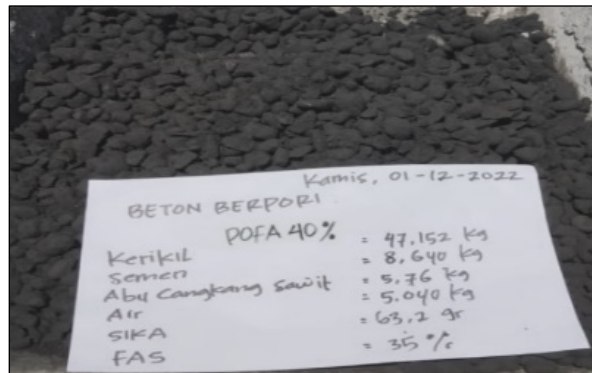 Kamis, 01-12-2022
BETON BERPORI
POFA 40%
Kerikil = 47.152 kg
Semen = 8,640 kg
Abu Cangkang Sawit = 5,76 kg
Air = 5.040 kg
SIKA = 63,2 gr
FAS = 35 %